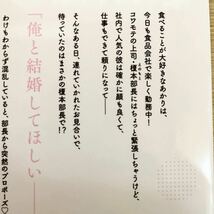 食べることが大好きなあかりは、
今日も食品会社で楽しく勤務中！
コワモテの上司・榎本部長にはちょっと緊張しちゃうけど、
社内で人気の彼は確かに顔も良くて、
仕事もできて頼りになって――
そんなある日、連れていかれたお見合いで、
待っていたのはまさかの榎本部長で!?
「俺と結婚してほしい
わけもわからず混乱していると、部長から突然のプロポーズ♡